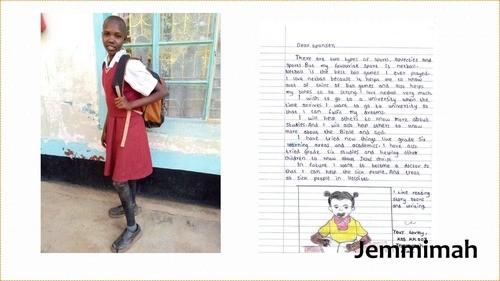 Dear Sponsor,
There are two types of sports. Athletics and
sports But my favourite sport is netball.
Netball is the best ball games I ever played.
I love netball because it helps me to know
out of skills of ball games and also helps
my joints to be strong I love netball very much.
I wish to go to a university when the
time arrives I want to go to university so
that I can fulfil my dreams.
I will help others to know more about
studies. And I will also help others to know
more about the Bible and God.
I have tried new things like grade six
learning areas and academics. I have also
tried grade six studies and helping other
children to know about Jesus christ.
In future I want to become a doctor so
that I can help the sick people. And treat
so sick people in hospital
I Like reading
story books
and writing
Your lovely,
Jemmimah